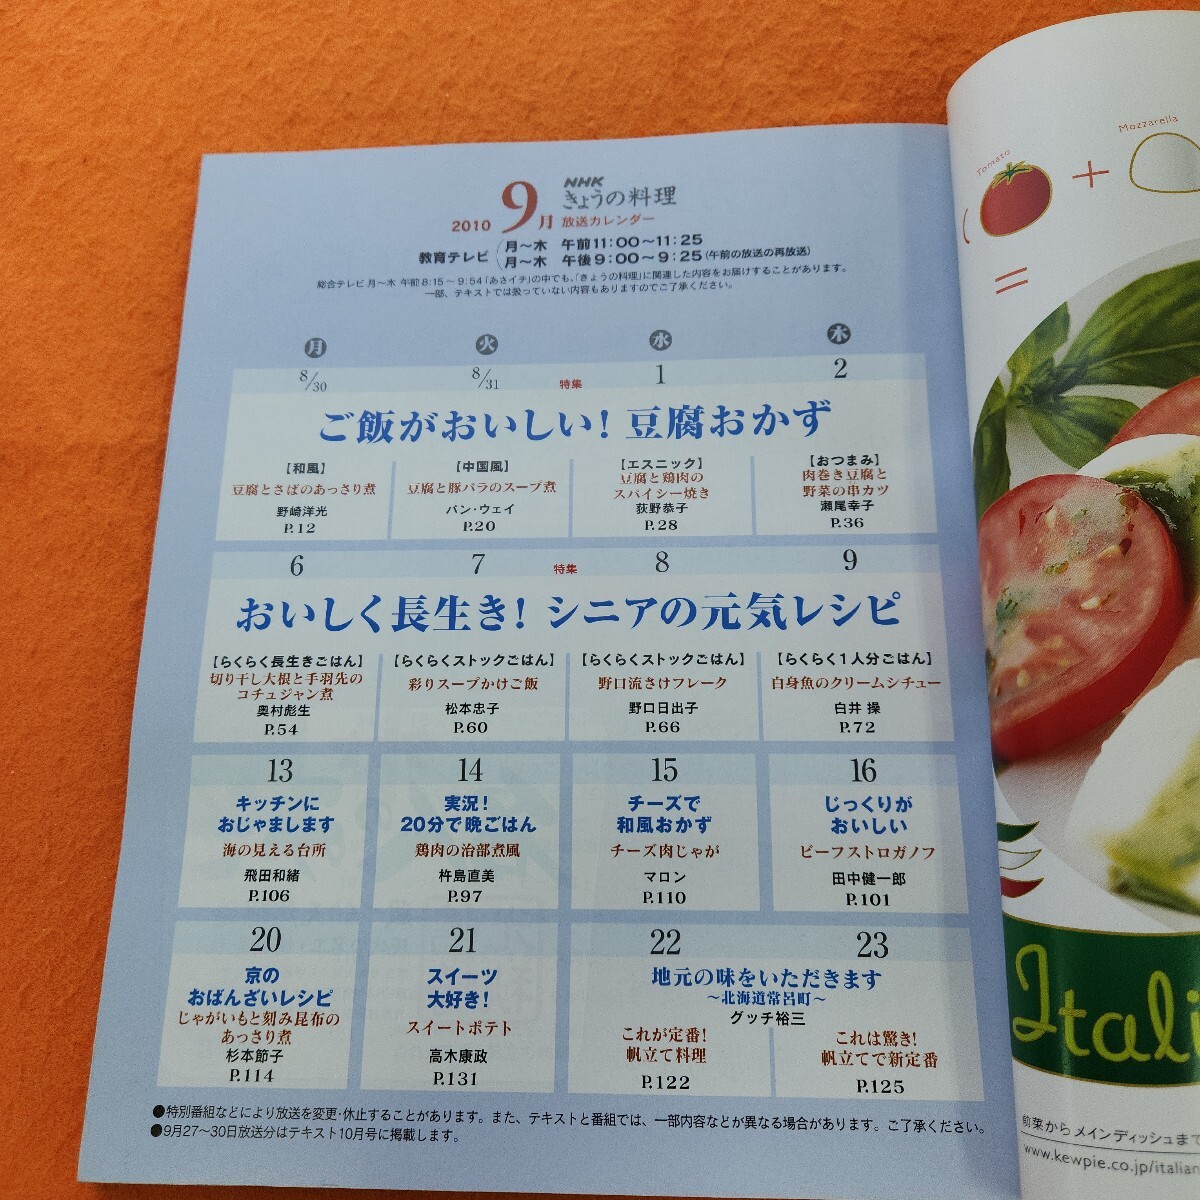 NHK
きょうの料理
2010 9月 放送カレンダー
教育テレビ
月～木 午前11:00～11:25
月～木 午後9:00～9:25(午前の放送の再放送)
総合テレビ 月～木 午前8:15～9:54「あさイチ」の中でも、「きょうの料理」に関連した内容をお届けすることがあります。
一部、テキストでは扱っていない内容もありますのでご了承ください。
月 火 水 木
8/30 8/31 特集 1 2
ご飯がおいしい! 豆腐おかず
【和風】
豆腐とさばのあっさり煮
野崎洋光
P.12
【中国風】
豆腐と豚バラのスープ煮
パン・ウェイ
P.20
【エスニック】
豆腐と鶏肉の
スパイシー焼き
荻野恭子
P.28
【おつまみ】
肉巻き豆腐と
野菜の串カツ
瀬尾幸子
P.36
6 7 特集 8 9
おいしく長生き! シニアの元気レシピ
【らくらく長生きごはん】
切り干し大根と手羽先の
コチュジャン煮
奥村彪生
P.54
【らくらくストックごはん】
彩りスープかけご飯
松本忠子
P.60
【らくらくストックごはん】
野口流さけフレーク
野口日出子
P.66
【らくらく1人分ごはん】
白身魚のクリームシチュー
白井 操
P.72
13
キッチンに
おじゃまします
海の見える台所
飛田和緒
P.106
14
実況!
20分で晩ごはん
鶏肉の治部煮風
杵島直美
P.97
15
チーズで
和風おかず
チーズ肉じゃが
マロン
P.110
16
じっくりが
おいしい
ビーフストロガノフ
田中健一郎
P.101
20
京の
おばんざいレシピ
じゃがいもと刻み昆布の
あっさり煮
杉本節子
P.114
21
スイーツ
大好き!
スイートポテト
高木康政
P.131
22 23
地元の味をいただきます
～北海道常呂町～
グッチ裕三
これが定番!
帆立て料理
P.122
これは驚き!
帆立てで新定番
P.125
●特別番組などにより放送を変更・休止することがあります。また、テキストと番組では、一部内容などが異なる場合があります。ご了承ください。
●9月27～30日放送分はテキスト10月号に掲載します。
Tomato
+
Mozzarella
=
Itali
前菜からメインディッシュまで
www.kewpie.co.jp/italian